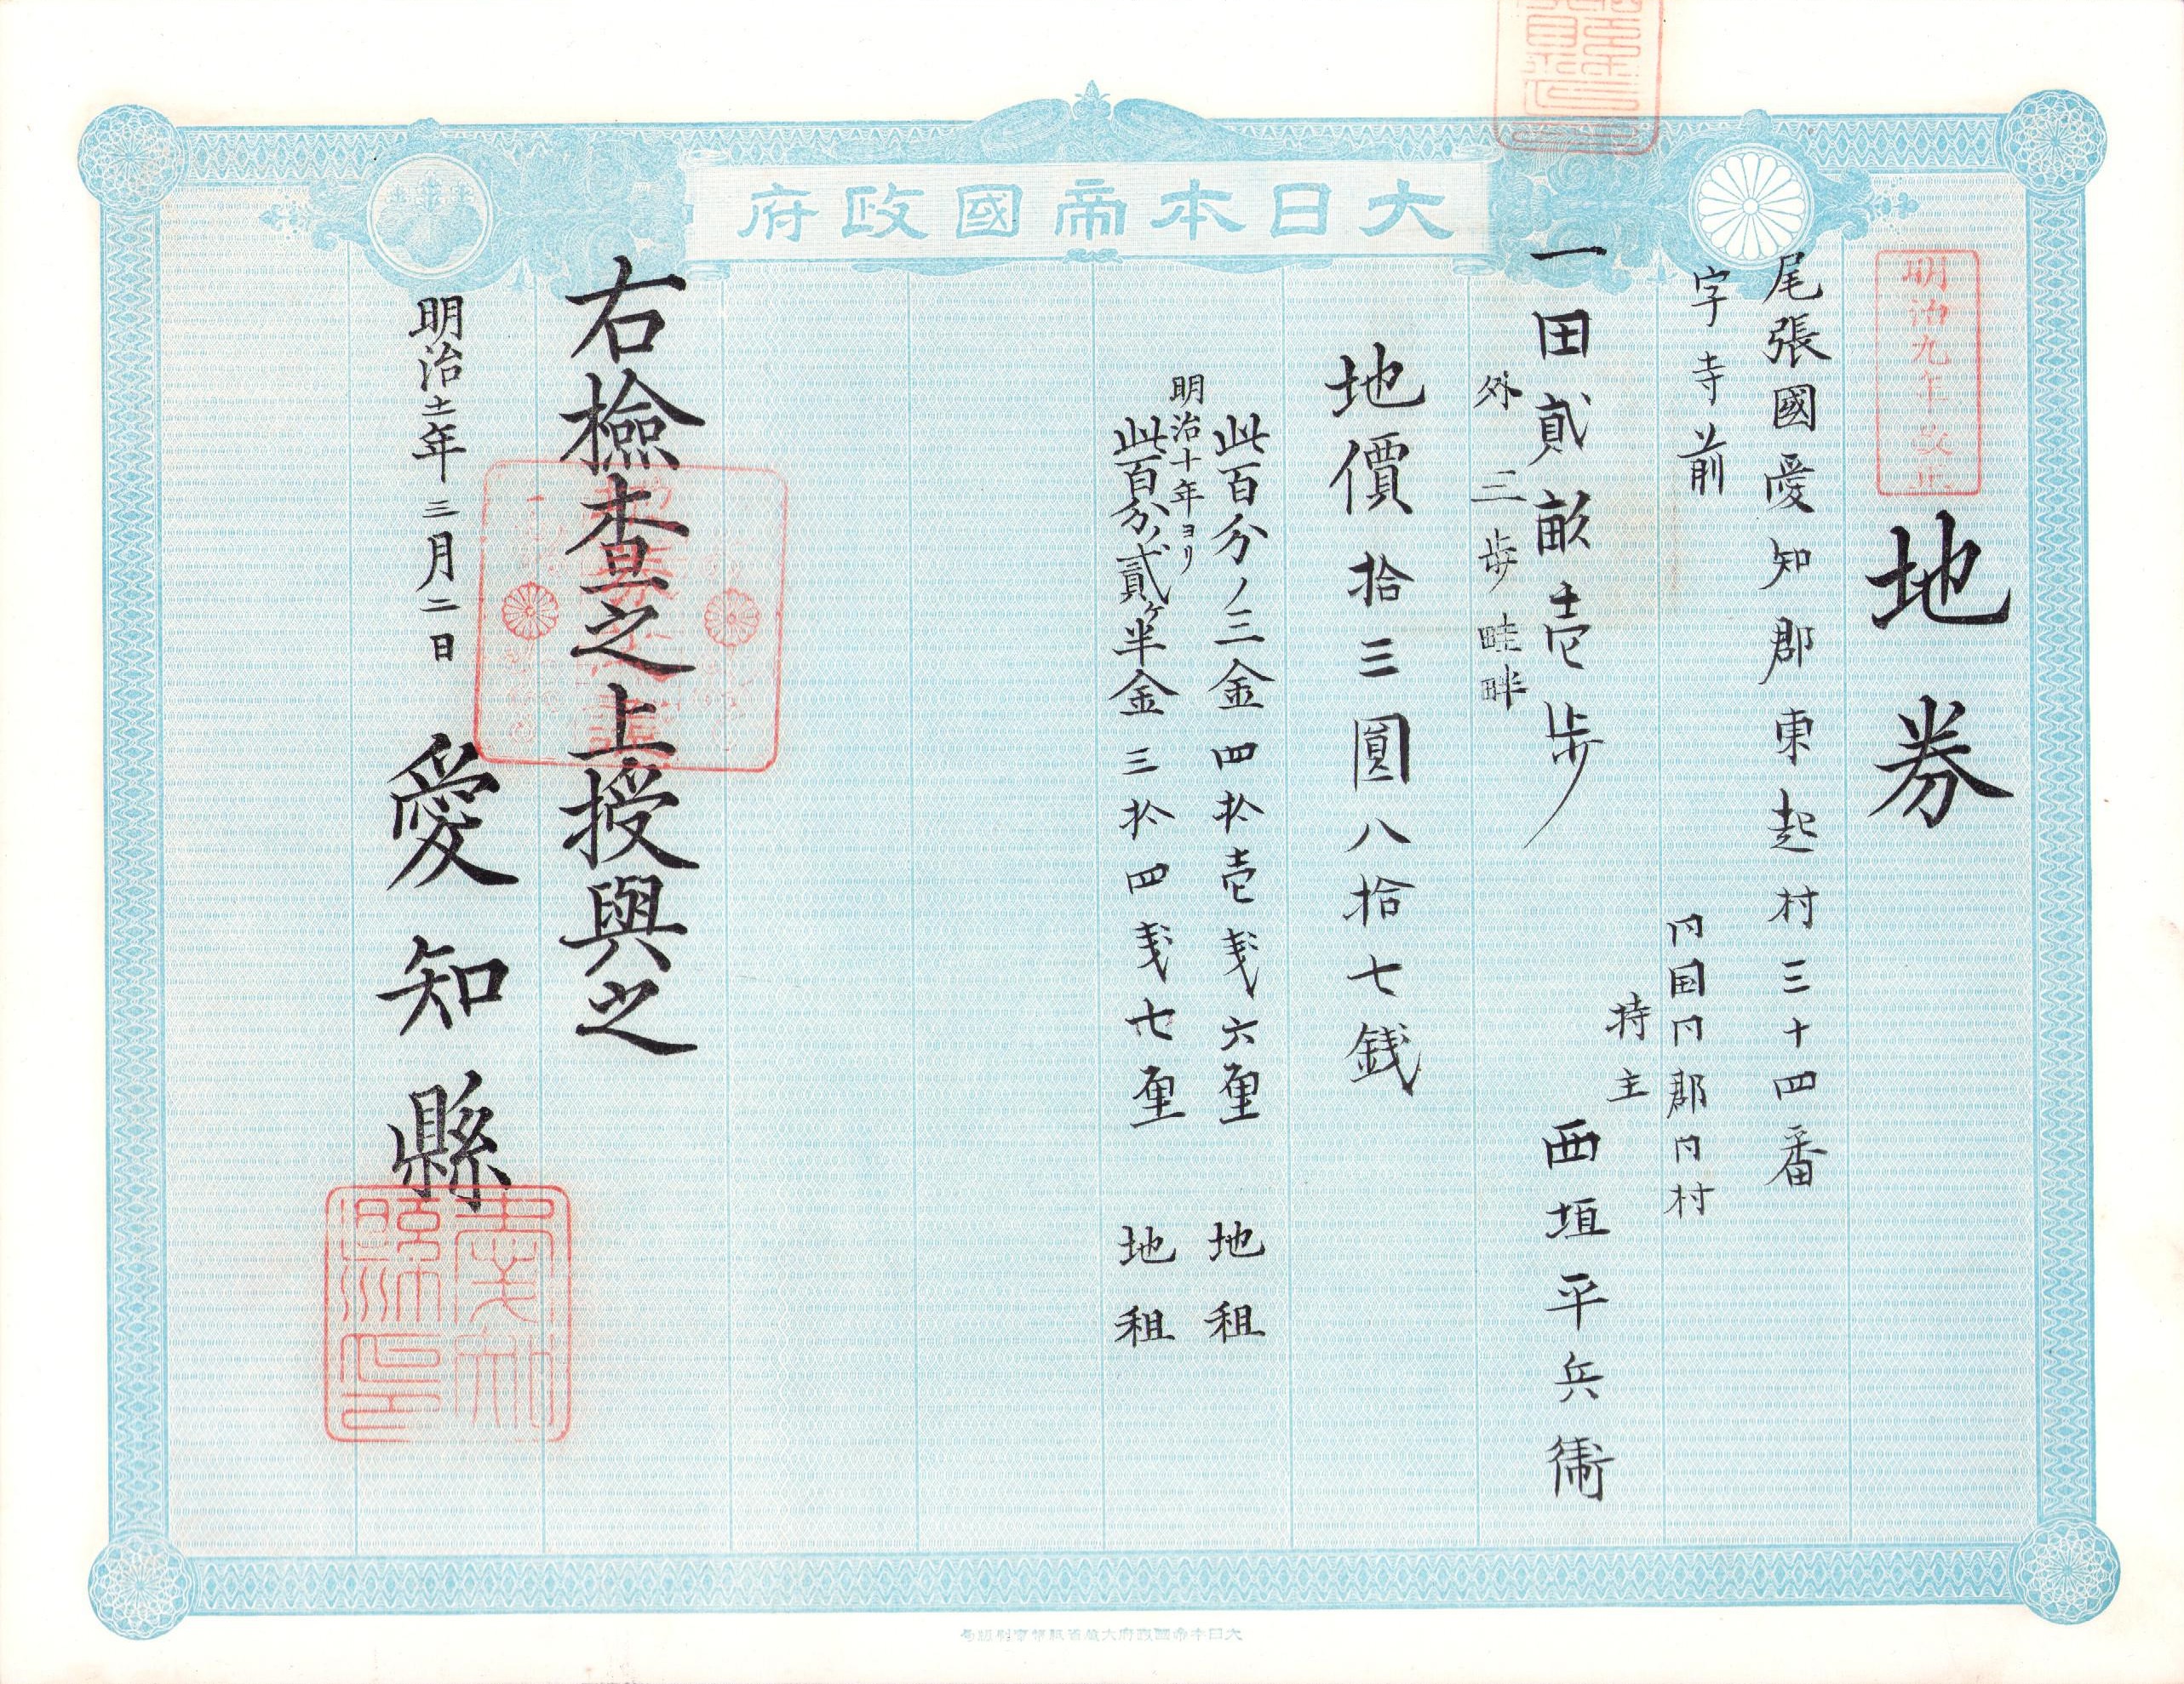 大日本帝國政府
明治九年改正
地券
尾張國愛知郡東起村三十四番
字寺前
同国同郡同村
持主
西垣平兵衛
一田貳畝壱歩
外三歩畦畔
地價拾三圓八拾七銭
此百分ノ三金四拾壱銭六厘 地租
明治十年ヨリ
此百分ノ貳ヶ半金三拾四銭七厘 地租
右檢査之上授與之
明治十二年三月二日
愛知縣
愛知縣印
大日本帝國政府大蔵省紙幣寮